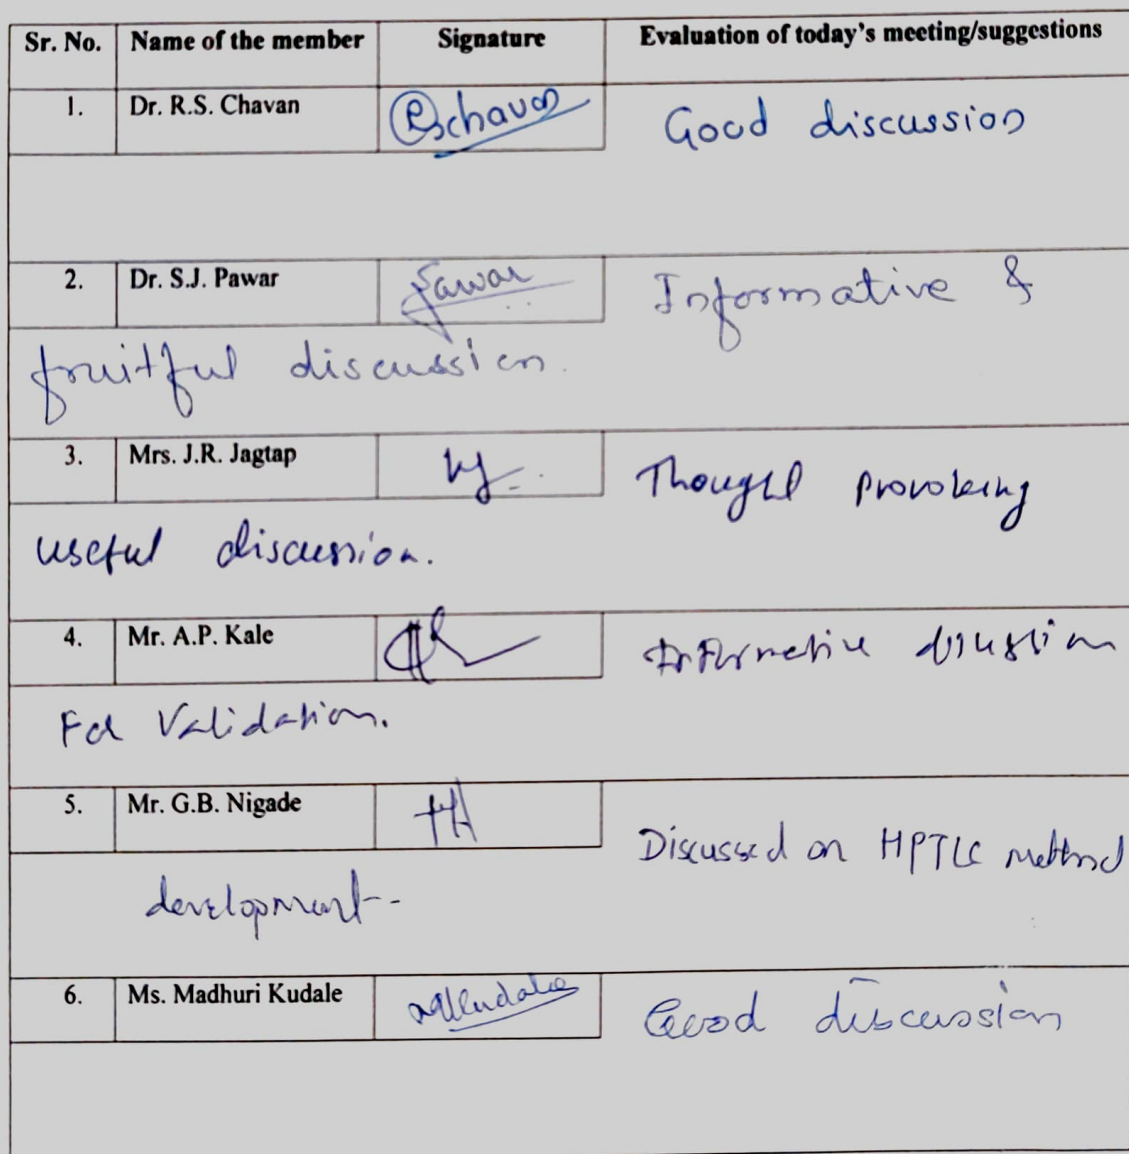 Sr. No. Name of the member Signature Evaluation of today's meeting/suggestions
1. Dr. R.S. Chavan RSChavan Good discussion
2. Dr. S.J. Pawar Pawar Informative &
fruitful discussion.
3. Mrs. J.R. Jagtap Thought provoking
useful discussion.
4. Mr. A.P. Kale Informative
For Validation.
5. Mr. G.B. Nigade Discussed on HPTLC method
development--
6. Ms. Madhuri Kudale MKudale Good discussion